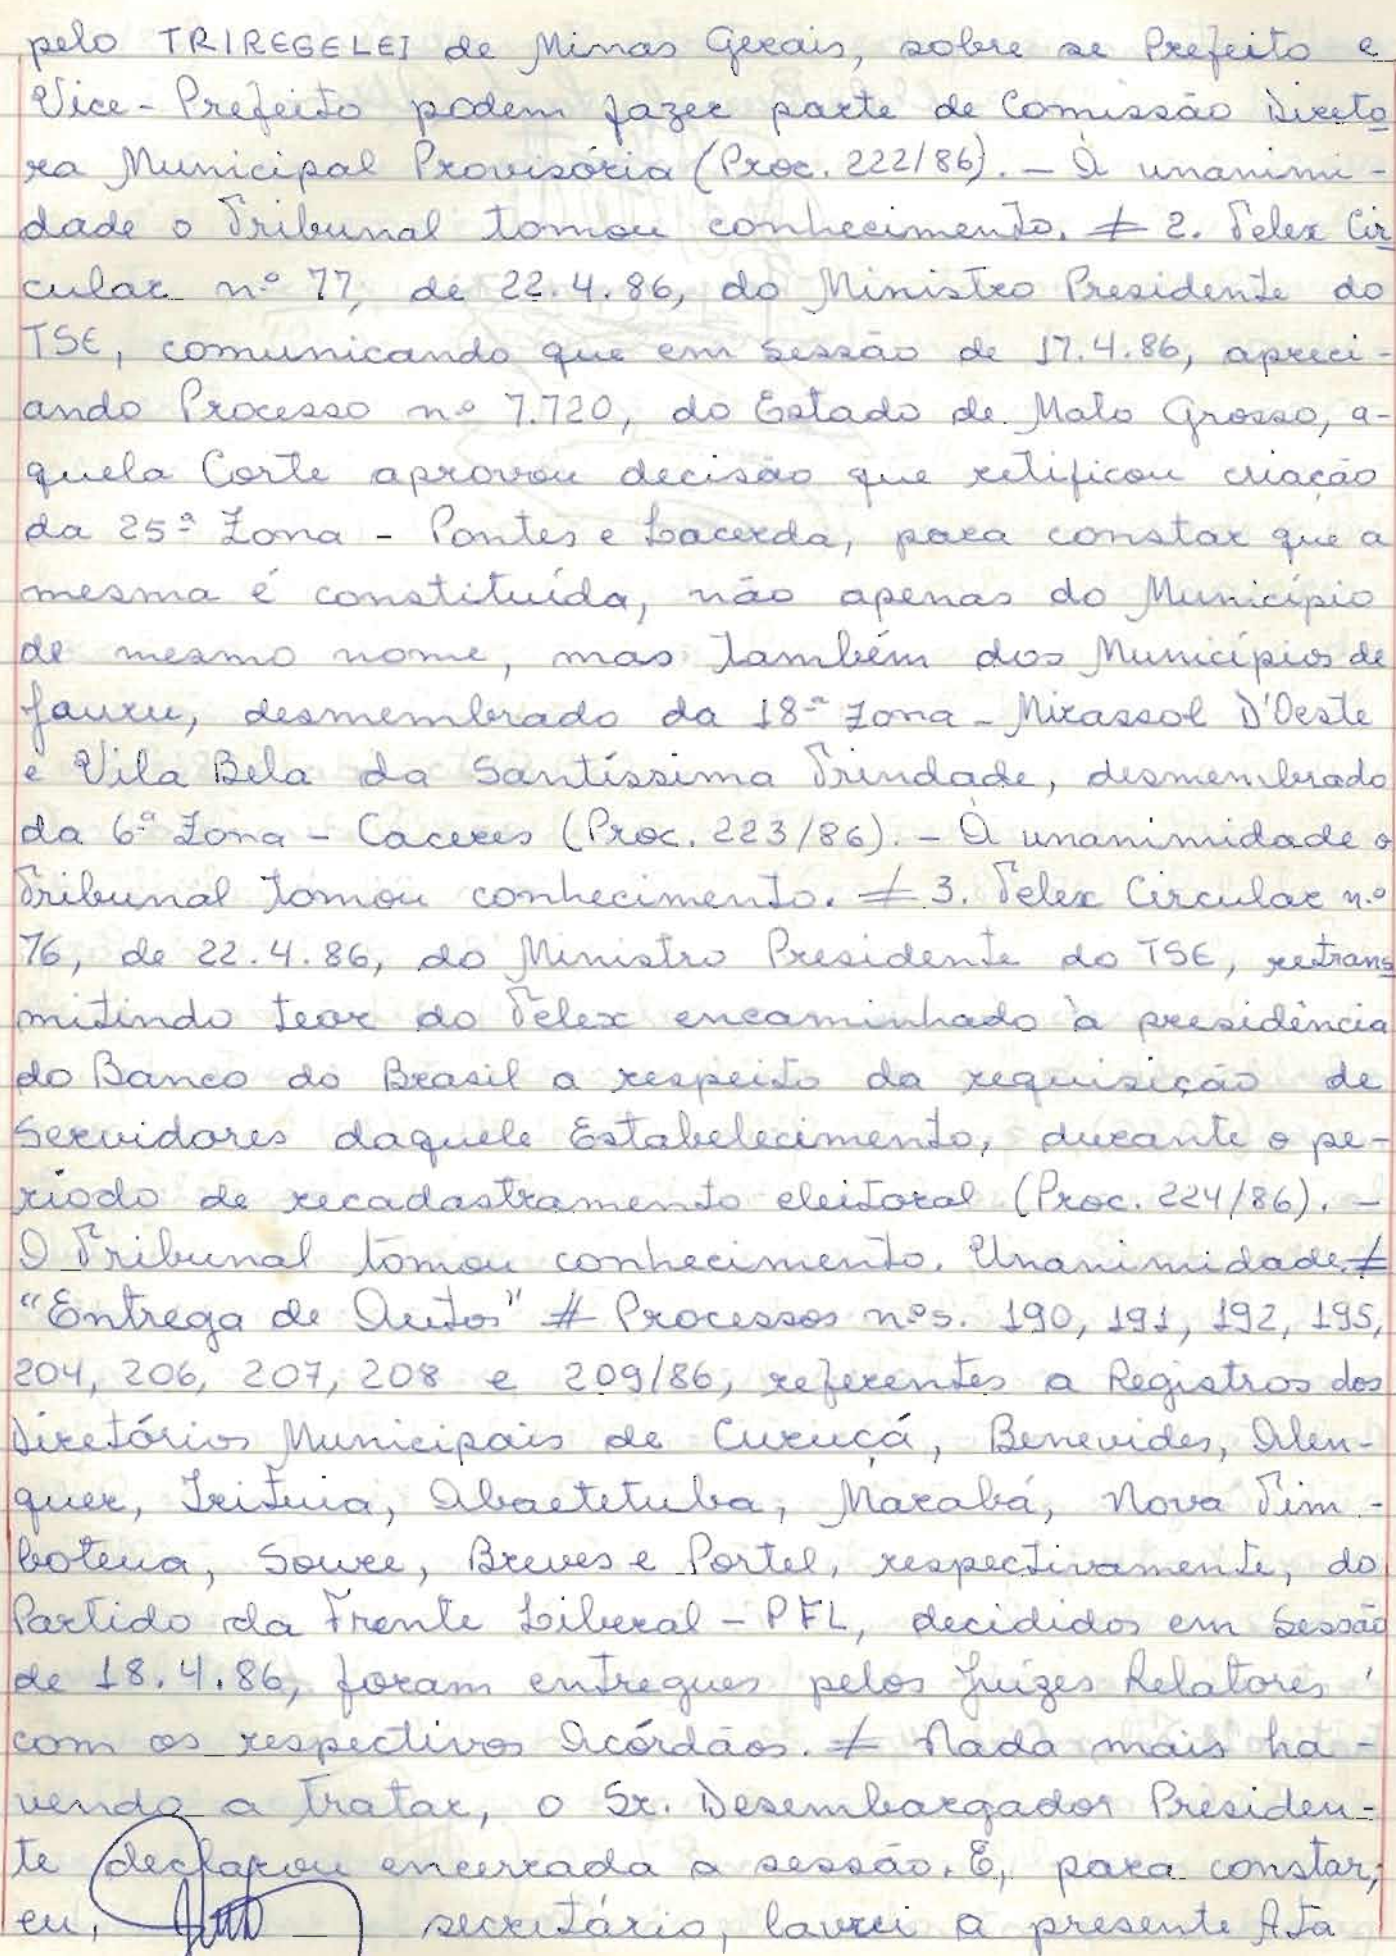 pelo TRIREGELEI de Minas Gerais, sobre se Prefeito e
Vice-Prefeito podem fazer parte de Comissão Direto
ra Municipal Provisória (Proc. 222/86). - À unanimi-
dade o Tribunal tomou conhecimento. ≠ 2. Telex Cir
cular nº 77, de 22.4.86, do Ministro Presidente do
TSE, comunicando que em sessão de 17.4.86, apreci-
ando Processo nº 7.720, do Estado de Mato Grosso, a-
quela Corte aprovou decisão que retificou criação
da 25ª Zona - Pontes e Lacerda, para constar que a
mesma é constituída, não apenas do Município
de mesmo nome, mas também dos Municípios de
Jauru, desmembrado da 18ª Zona - Mirassol D'Oeste
e Vila Bela da Santíssima Trindade, desmembrado
da 6ª Zona - Caceres (Proc. 223/86). - À unanimidade o
Tribunal tomou conhecimento. ≠ 3. Telex Circular n.º
76, de 22.4.86, do Ministro Presidente do TSE, retrans
mitindo teor do Telex encaminhado à presidência
do Banco do Brasil a respeito da requisição de
Servidores daquele Estabelecimento, durante o pe-
ríodo de recadastramento eleitoral (Proc. 224/86). -
O Tribunal tomou conhecimento. Unanimidade. ≠
"Entrega de Autos" # Processos nºs. 190, 191, 192, 195,
204, 206, 207, 208 e 209/86, referentes a Registros dos
Diretórios Municipais de Curuçá, Benevides, Alen-
quer, Irituia, Abaetetuba, Marabá, Nova Tim-
boteua, Soure, Breves e Portel, respectivamente, do
Partido da Frente Liberal - PFL, decididos em Sessão
de 18.4.86, foram entregues pelos Juízes Relatores
com os respectivos Acórdãos. ≠ Nada mais ha-
vendo a tratar, o Sr. Desembargador Presiden-
te declarou encerrada a sessão. E, para constar,
eu, secretário, lavrei a presente Ata